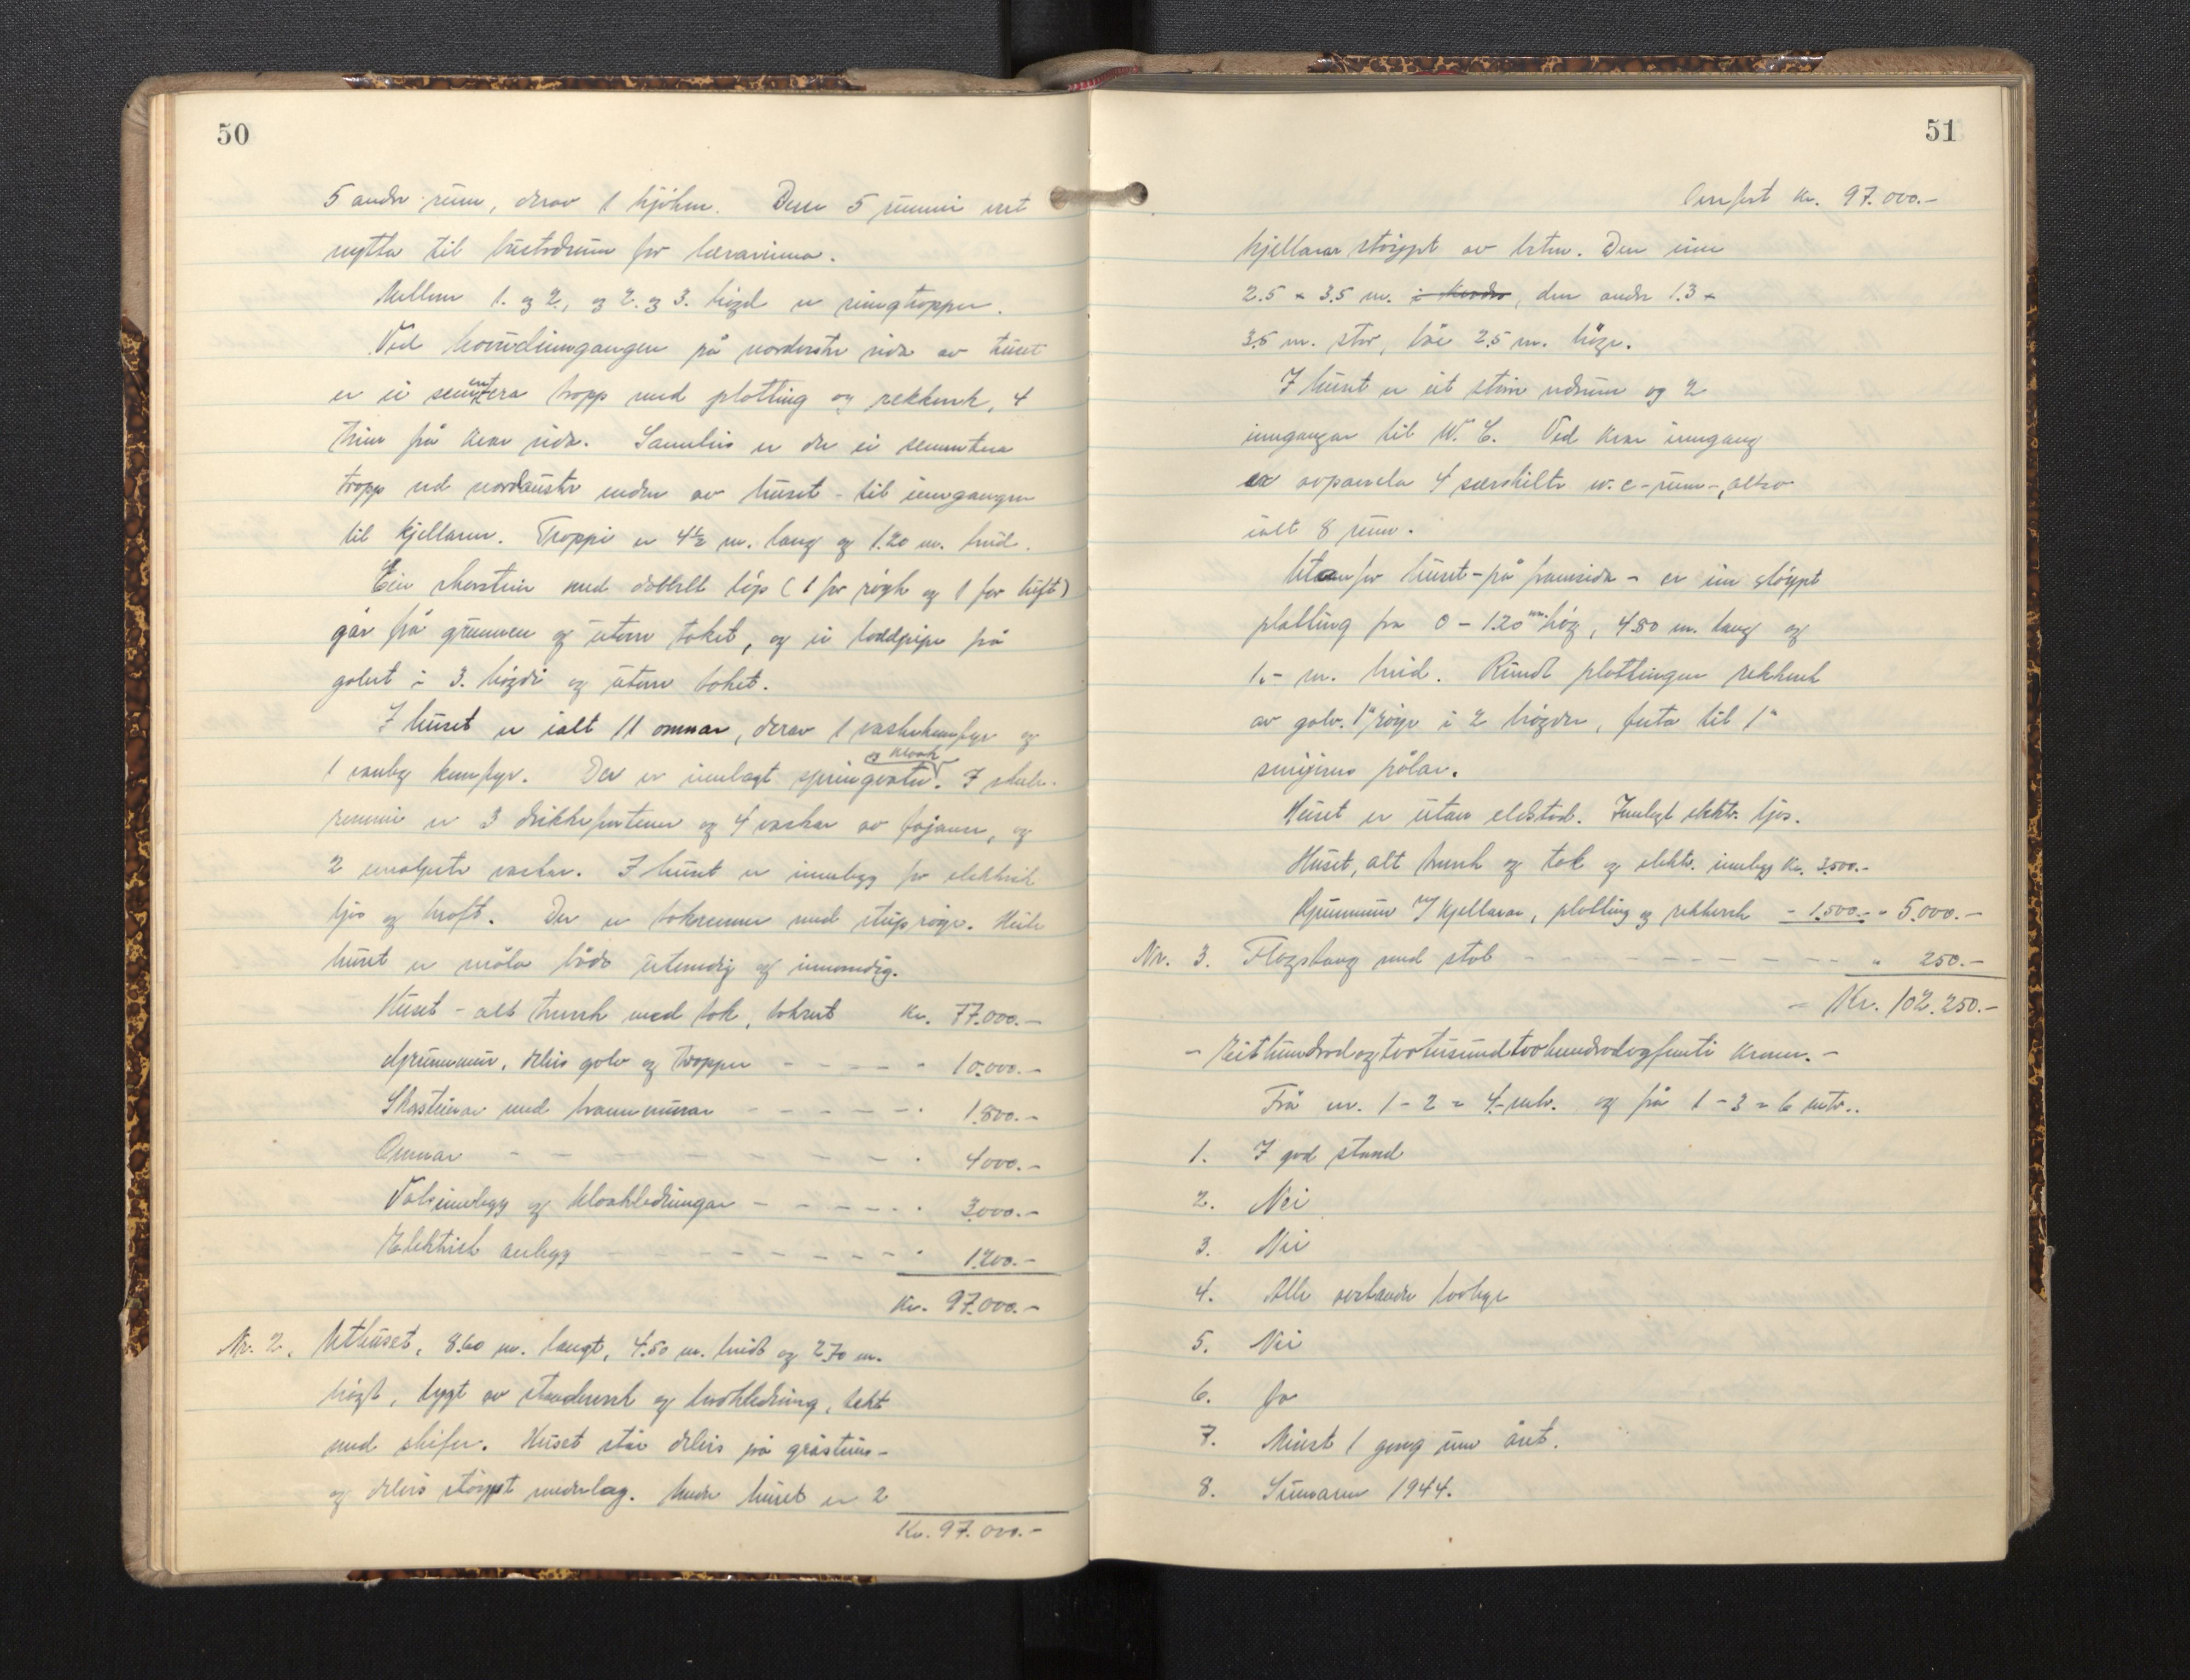 50
5 andre rum, derav 1 kjøken. Desse 5 rummi vert
nytta til bustadrum for lærarinna.
Mellom 1. og 2., og 2. og 3. høgd er ringtropper.
Ved hovudinngangen på nordøstre sida av huset
er ei sementera tropp med platting og rekkverk, 4
trinn på kvar sida. Sameleis er der ei sementera
tropp ved nordaustre enden av huset - til inngangen
til kjellaren. Troppi er 4½ m. lang og 1.20 m. breid.
Ein skorstein med dobbelt løp (1 for røyk og 1 for luft)
går frå grunnen og utom taket, og ei loddpipe frå
golvet i 3. høgdi og utom taket.
I huset er ialt 11 omnar, derav 1 vaskekomfyr og
1 vanleg komfyr. Der er innlagt springvatn og kloak. I skule-
rommi er 3 drikkefontener og 4 vaskar av fajanse, og
2 emaljerte vaskar. I huset er innlegg for elektrisk
ljos og kraft. Der er takrenner med stuprøyr. Heile
huset er måla både utvendig og innvendig.
Huset - alt treverk med tak, takrent Kr. 77.000.-
Grunnmur, delvis golv og tropper - - - - - " 10.000.-
Skorsteinar med brannmurar - - - - - " 1.800.-
Omnar - - - - - - - - - " 4000.-
Vatsinnlegg og kloakledningar - - - - - " 3000.-
Elektrisk anlegg - - - - - - - - " 1.200.-
Kr. 97.000.-
Nr. 2. Uthuset, 8.60 m. langt, 4.50 m. breidt og 2.70 m.
høgt, bygt av stenderverk og bordkledning, tekt
med skifer. Huset står delvis på gråsteins-
og delvis støypt underlag. Under huset er 2
Kr. 97.000.-
51
Overført Kr. 97.000.-
kjellarar støypt av betong. Den eine
2.5 x 3.5 m. , den andre 1.3 x
3.5 m. stor, båe 2.5 m. høge.
I huset er eit større vedrum og 2
inngangar til W. C. Ved kvar inngang
er avpanela 4 særskilte w.c-rum -, altso
ialt 8 rum.
Utanfor huset - på framsida - er ein støypt
platting fra 0 - 1.20 m. høg, 4.80 m. lang og
1.- m. breid. Rundt plattingen rekkverk
av galv. 1" røyr i 2 høgder, festa til 1"
pålar.
Huset er utan eldstad. Innlagt elektr. ljos.
Huset, alt treverk og tak og elektr. innlegg Kr. 3.500.-
Grunnmur m/ kjellarar, platting og rekkverk - 1.500.- " 5.000.-
Nr. 3. Flagstang med stol - - - - - - - - - " 250.-
- Kr. 102.250.-
- Eithundradogtvotusundtvohundradogfemti kroner. -
Frå nr. 1 - 2 = 4 mtr. og frå 1 - 3 = 6 mtr..
1. I god stand
2. Nei
3. Nei
4. Alle verande lovlege
5. Nei
6. Ja
7. Minst 1 gong um året.
8. Sumaren 1944.